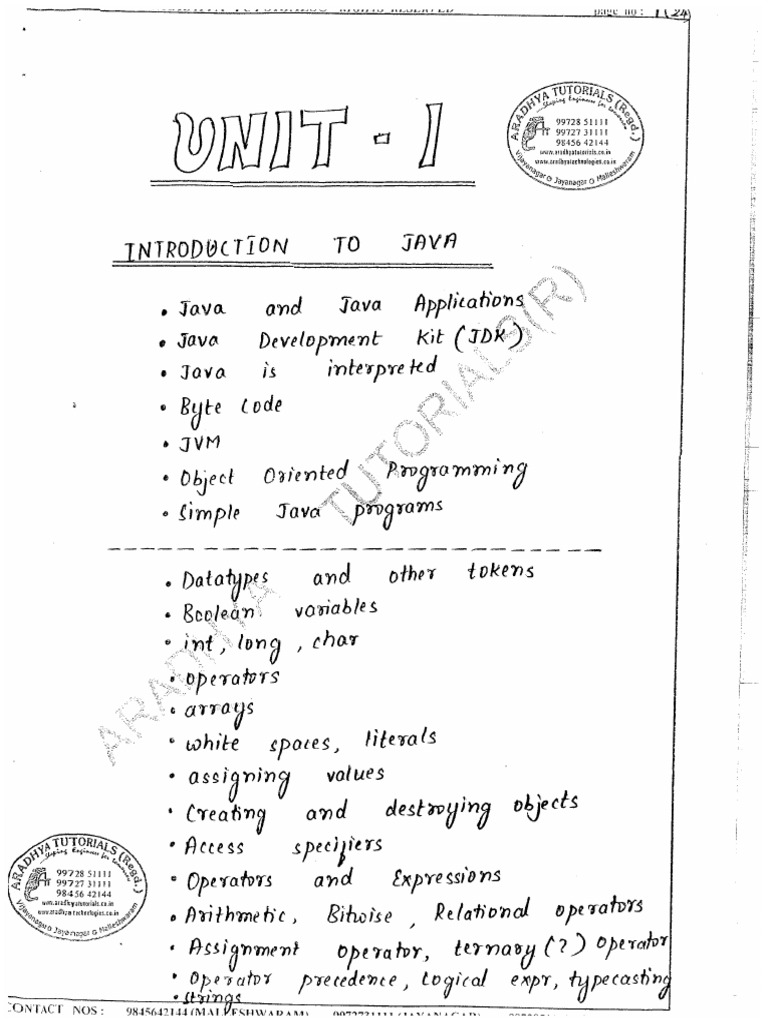 ARADHYA TUTORIALS RIGHTS RESERVED page no : 1(24)
UNIT - 1
ARADHYA TUTORIALS (Regd.)
Shaping Engineers for tomorrow
99728 51111
99727 31111
98456 42144
www.aradhyatutorials.co.in
www.aradhyatechnologies.co.in
Vijayanagar Jayanagar Malleshwaram
INTRODUCTION TO JAVA
• Java and Java Applications
• Java Development Kit (JDK)
• Java is interpreted
• Byte Code
• JVM
• Object Oriented Programming
• Simple Java programs
• Datatypes and other tokens
• Boolean variables
• int, long, char
• operators
• arrays
• white spaces, literals
• assigning values
• Creating and destroying objects
• Access specifiers
• Operators and Expressions
• Arithmetic, Bitwise, Relational operators
• Assignment operator, ternary (?) Operator
• Operator precedence, Logical expr, typecasting
• strings
ARADHYA TUTORIALS(R)
ARADHYA TUTORIALS (Regd.)
Shaping Engineers for tomorrow
99728 51111
99727 31111
98456 42144
www.aradhyatutorials.co.in
www.aradhyatechnologies.co.in
Vijayanagar Jayanagar Malleshwaram
CONTACT NOS : 9845642144 (MALLESHWARAM) 9972731111 (JAYANAGAR)